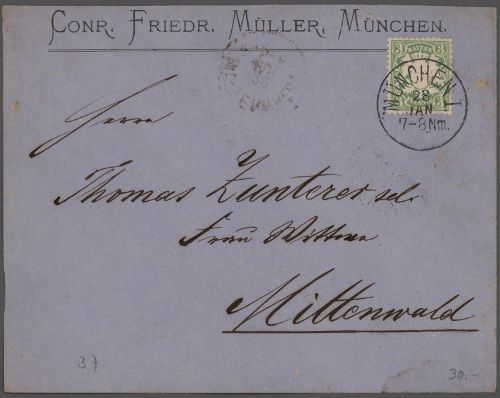 CONR. FRIEDR. MÜLLER, MÜNCHEN.
3 BAYERN 3
MÜNCHEN I
28
JAN
7-8 Nm.
Herrn
Thomas Zunterer sel.
Frau Wittwe
Mittenwald
37
30.-